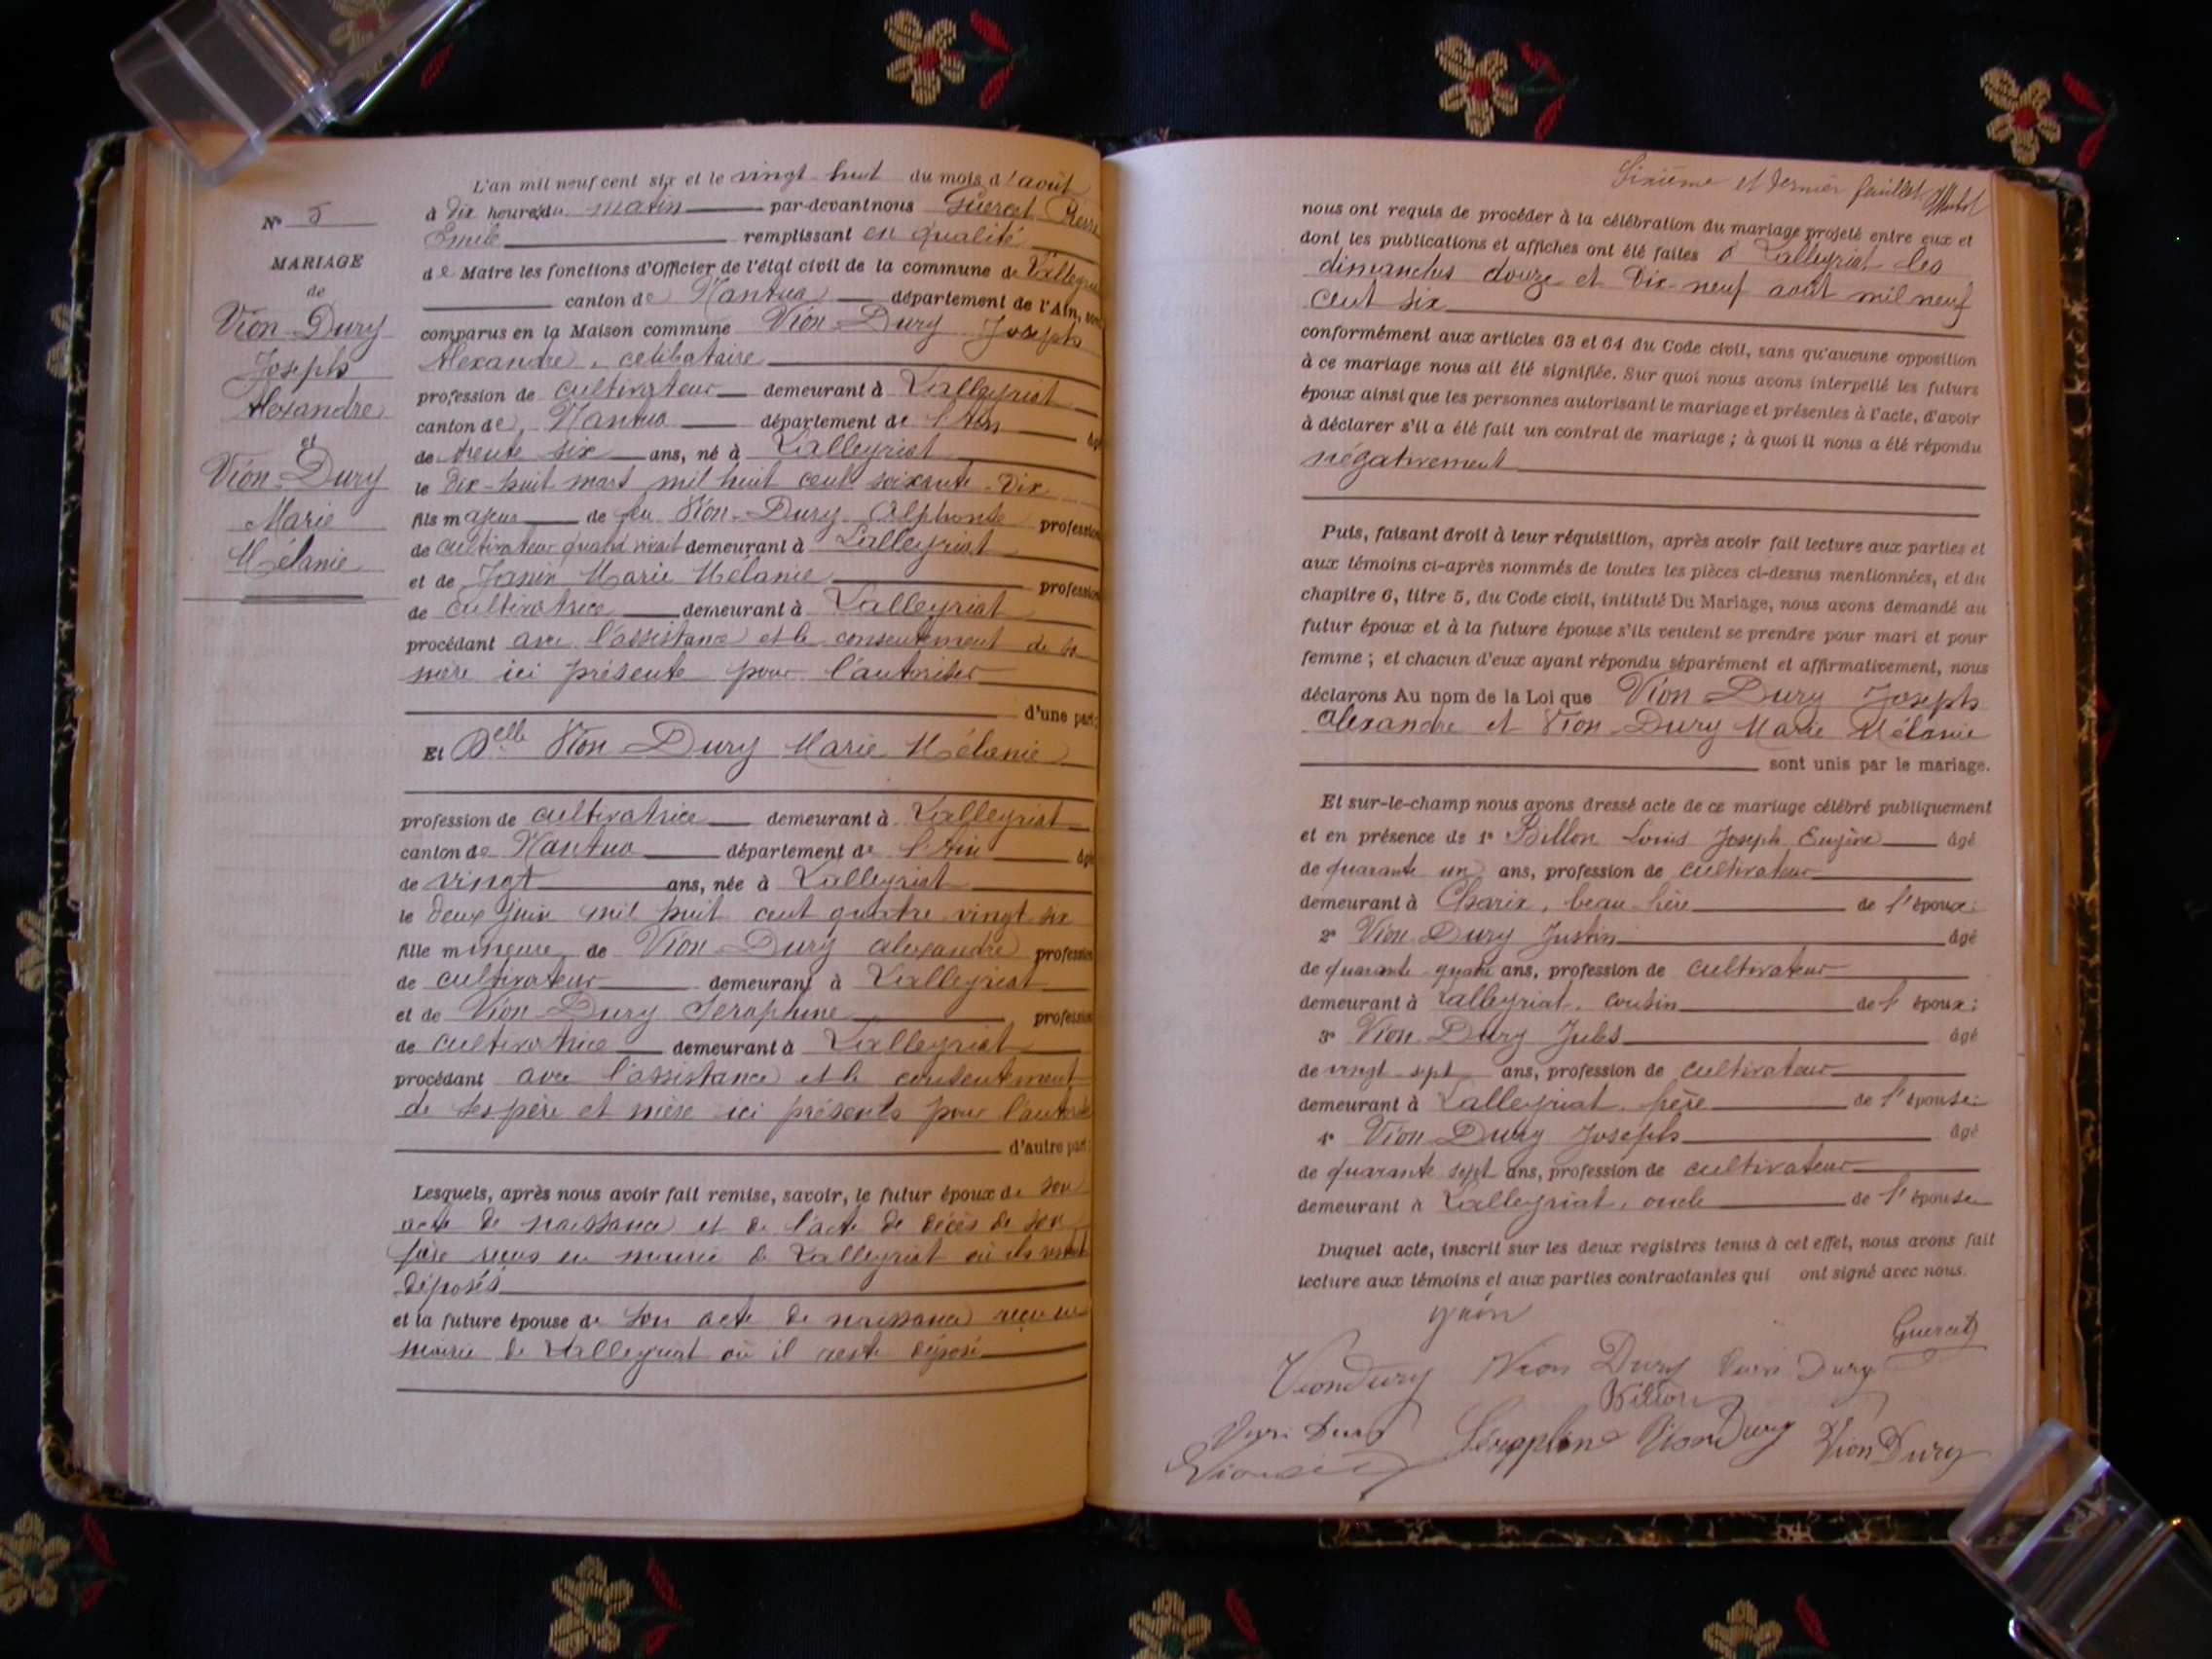 L'an mil neuf cent six et le vingt-huit du mois d'août
à dix heures du matin par-devant nous Guercet Pierre
Emile remplissant en qualité
de Maire les fonctions d'Officier de l'état civil de la commune de Lalleyriat
canton de Nantua département de l'Ain, sont
comparus en la Maison commune Vion-Dury Joseph
Alexandre, célibataire
profession de cultivateur demeurant à Lalleyriat
canton de Nantua département de l'Ain âgé
de trente six ans, né à Lalleyriat
le dix-huit mars mil huit cent soixante-dix
fils majeur de feu Vion-Dury Alphonse profession
de cultivateur quand vivait demeurant à Lalleyriat
et de Janin Marie Mélanie profession
de cultivatrice demeurant à Lalleyriat
procédant avec l'assistance et le consentement de sa
mère ici présente pour l'autoriser
d'une part;
Et Delle Vion-Dury Marie Mélanie
profession de cultivatrice demeurant à Lalleyriat
canton de Nantua département de l'Ain âgé
de vingt ans, née à Lalleyriat
le deux juin mil huit cent quatre-vingt-six
fille mineure de Vion-Dury Alexandre profession
de cultivateur demeurant à Lalleyriat
et de Vion-Dury Séraphine profession
de cultivatrice demeurant à Lalleyriat
procédant avec l'assistance et le consentement
de ses père et mère ici présents pour l'autoriser
d'autre part:
Lesquels, après nous avoir fait remise, savoir, le futur époux de son
acte de naissance et de l'acte de décès de son
père reçus en mairie de Lalleyriat où ils restent
déposés
et la future épouse de son acte de naissance reçu en
mairie de Lalleyriat où il reste déposé
N° 5
MARIAGE
de
Vion-Dury
Joseph
Alexandre
et
Vion-Dury
Marie
Mélanie
Sixième et dernier feuillet
nous ont requis de procéder à la célébration du mariage projeté entre eux et
dont les publications et affiches ont été faites à Lalleyriat les
dimanches douze et dix-neuf août mil neuf
cent six
conformément aux articles 63 et 64 du Code civil, sans qu'aucune opposition
à ce mariage nous ait été signifiée. Sur quoi nous avons interpellé les futurs
époux ainsi que les personnes autorisant le mariage et présentes à l'acte, d'avoir
à déclarer s'il a été fait un contrat de mariage ; à quoi il nous a été répondu
négativement
Puis, faisant droit à leur réquisition, après avoir fait lecture aux parties et
aux témoins ci-après nommés de toutes les pièces ci-dessus mentionnées, et du
chapitre 6, titre 5, du Code civil, intitulé Du Mariage, nous avons demandé au
futur époux et à la future épouse s'ils veulent se prendre pour mari et pour
femme ; et chacun d'eux ayant répondu séparément et affirmativement, nous
déclarons Au nom de la Loi que Vion Dury Joseph
Alexandre et Vion-Dury Marie Mélanie
sont unis par le mariage.
Et sur-le-champ nous avons dressé acte de ce mariage célébré publiquement
et en présence de 1° Billon Louis Joseph Eugène âgé
de quarante un ans, profession de cultivateur
demeurant à Charix, beau-frère de l'époux:
2° Vion Dury Justin âgé
de quarante-quatre ans, profession de cultivateur
demeurant à Lalleyriat, cousin de l'époux:
3° Vion Dury Jules âgé
de vingt-sept ans, profession de cultivateur
demeurant à Lalleyriat, frère de l'épouse:
4° Vion Dury Joseph âgé
de quarante sept ans, profession de cultivateur
demeurant à Lalleyriat, oncle de l'épouse
Duquel acte, inscrit sur les deux registres tenus à cet effet, nous avons fait
lecture aux témoins et aux parties contractantes qui ont signé avec nous.
Guercet
Viondury Vion Dury Vion Dury
Billon
Vion Dury Séraphine Vion Dury Vion Dury